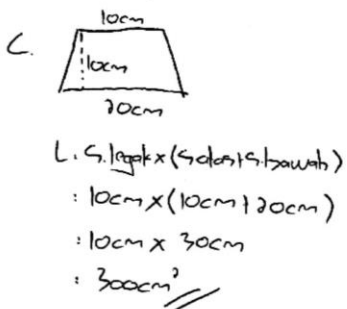 10cm
C.
10cm
20cm
L. S. tegak x (S. atas + S. bawah)
: 10cm x (10cm + 20cm)
: 10cm x 30cm
: 300cm²